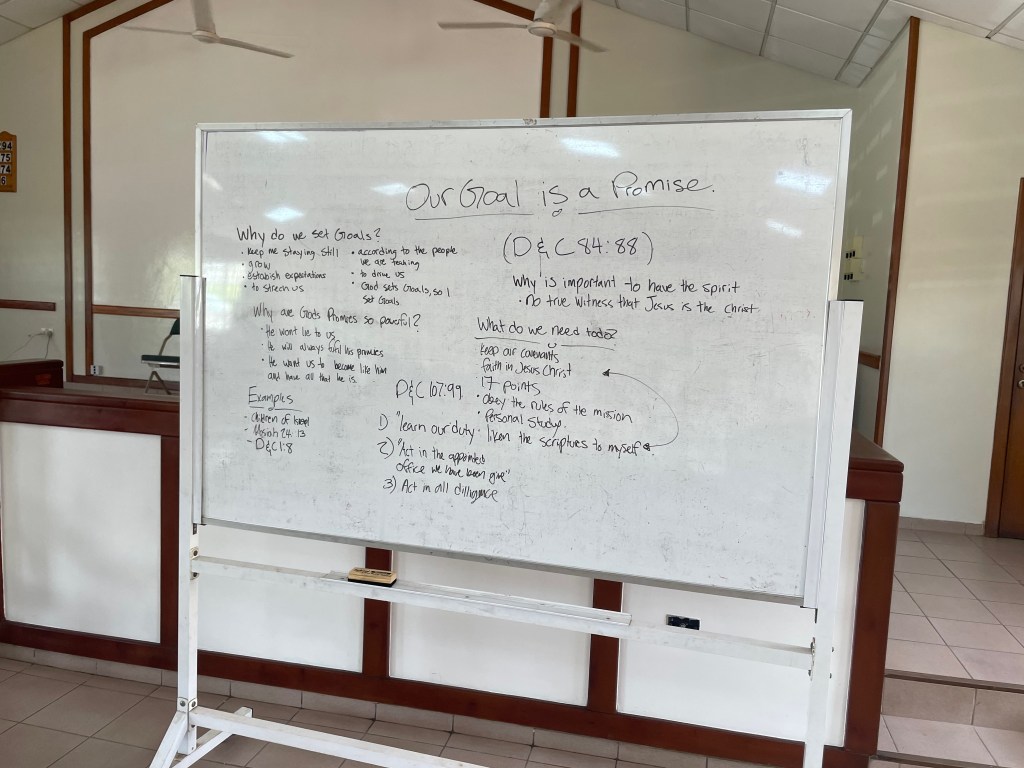 Our Goal is a Promise.
Why do we set Goals?
• keep me staying still
• grow
• establish expectations
• to strech us
• according to the people
we are teaching
• to drive us
• God sets Goals, so I
set Goals
Why are Gods Promies so powerful?
• He wont lie to us
• He will always fulfil his promises
• He want us to become like him
and have all that he is.
Examples
- of Israel
- 24:13
- D&C 1:8
(D & C 84:88)
Why is important to have the spirit
• no true witness that Jesus is the christ
What do we need today?
Keep our covenants
faith in Jesus Christ
17 points
• obey the rules of the mission
• Personal study.
• liken the scriptures to myself
D&C 107:99
1) "learn our duty
2) "Act in the appointed
office we have been give"
3) Act in all dilligence
94
75
74
6